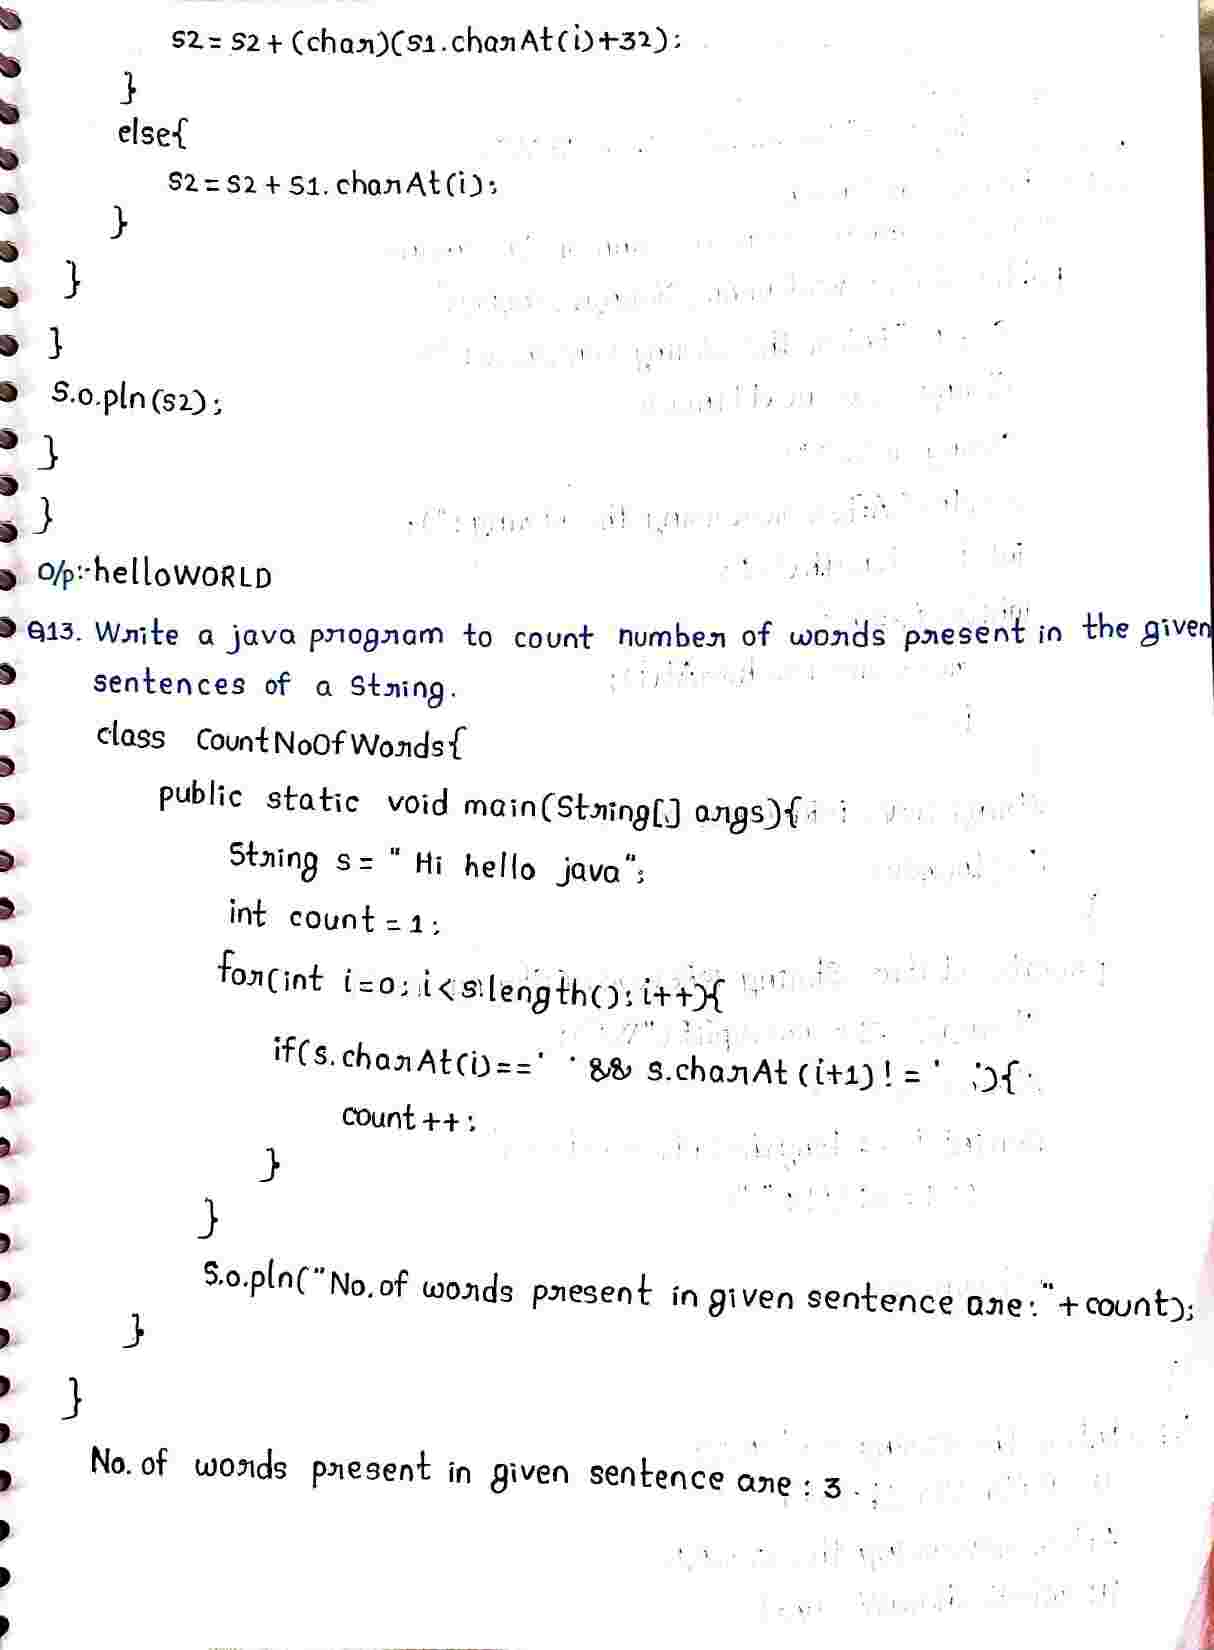 s2 = s2 + (char)(s1.charAt(i)+32);
}
else{
s2 = s2 + s1.charAt(i);
}
}
}
S.o.pln(s2);
}
}
O/p:- helloWORLD
Q13. Write a java program to count number of words present in the given
sentences of a String.
class CountNoOfWords{
public static void main(String[] args){
String s = " Hi hello java";
int count = 1;
for(int i=0; i<s.length(); i++){
if(s.charAt(i)==' ' && s.charAt(i+1)!=' '){
count++;
}
}
S.o.pln("No. of words present in given sentence are:"+count);
}
}
No. of words present in given sentence are : 3.